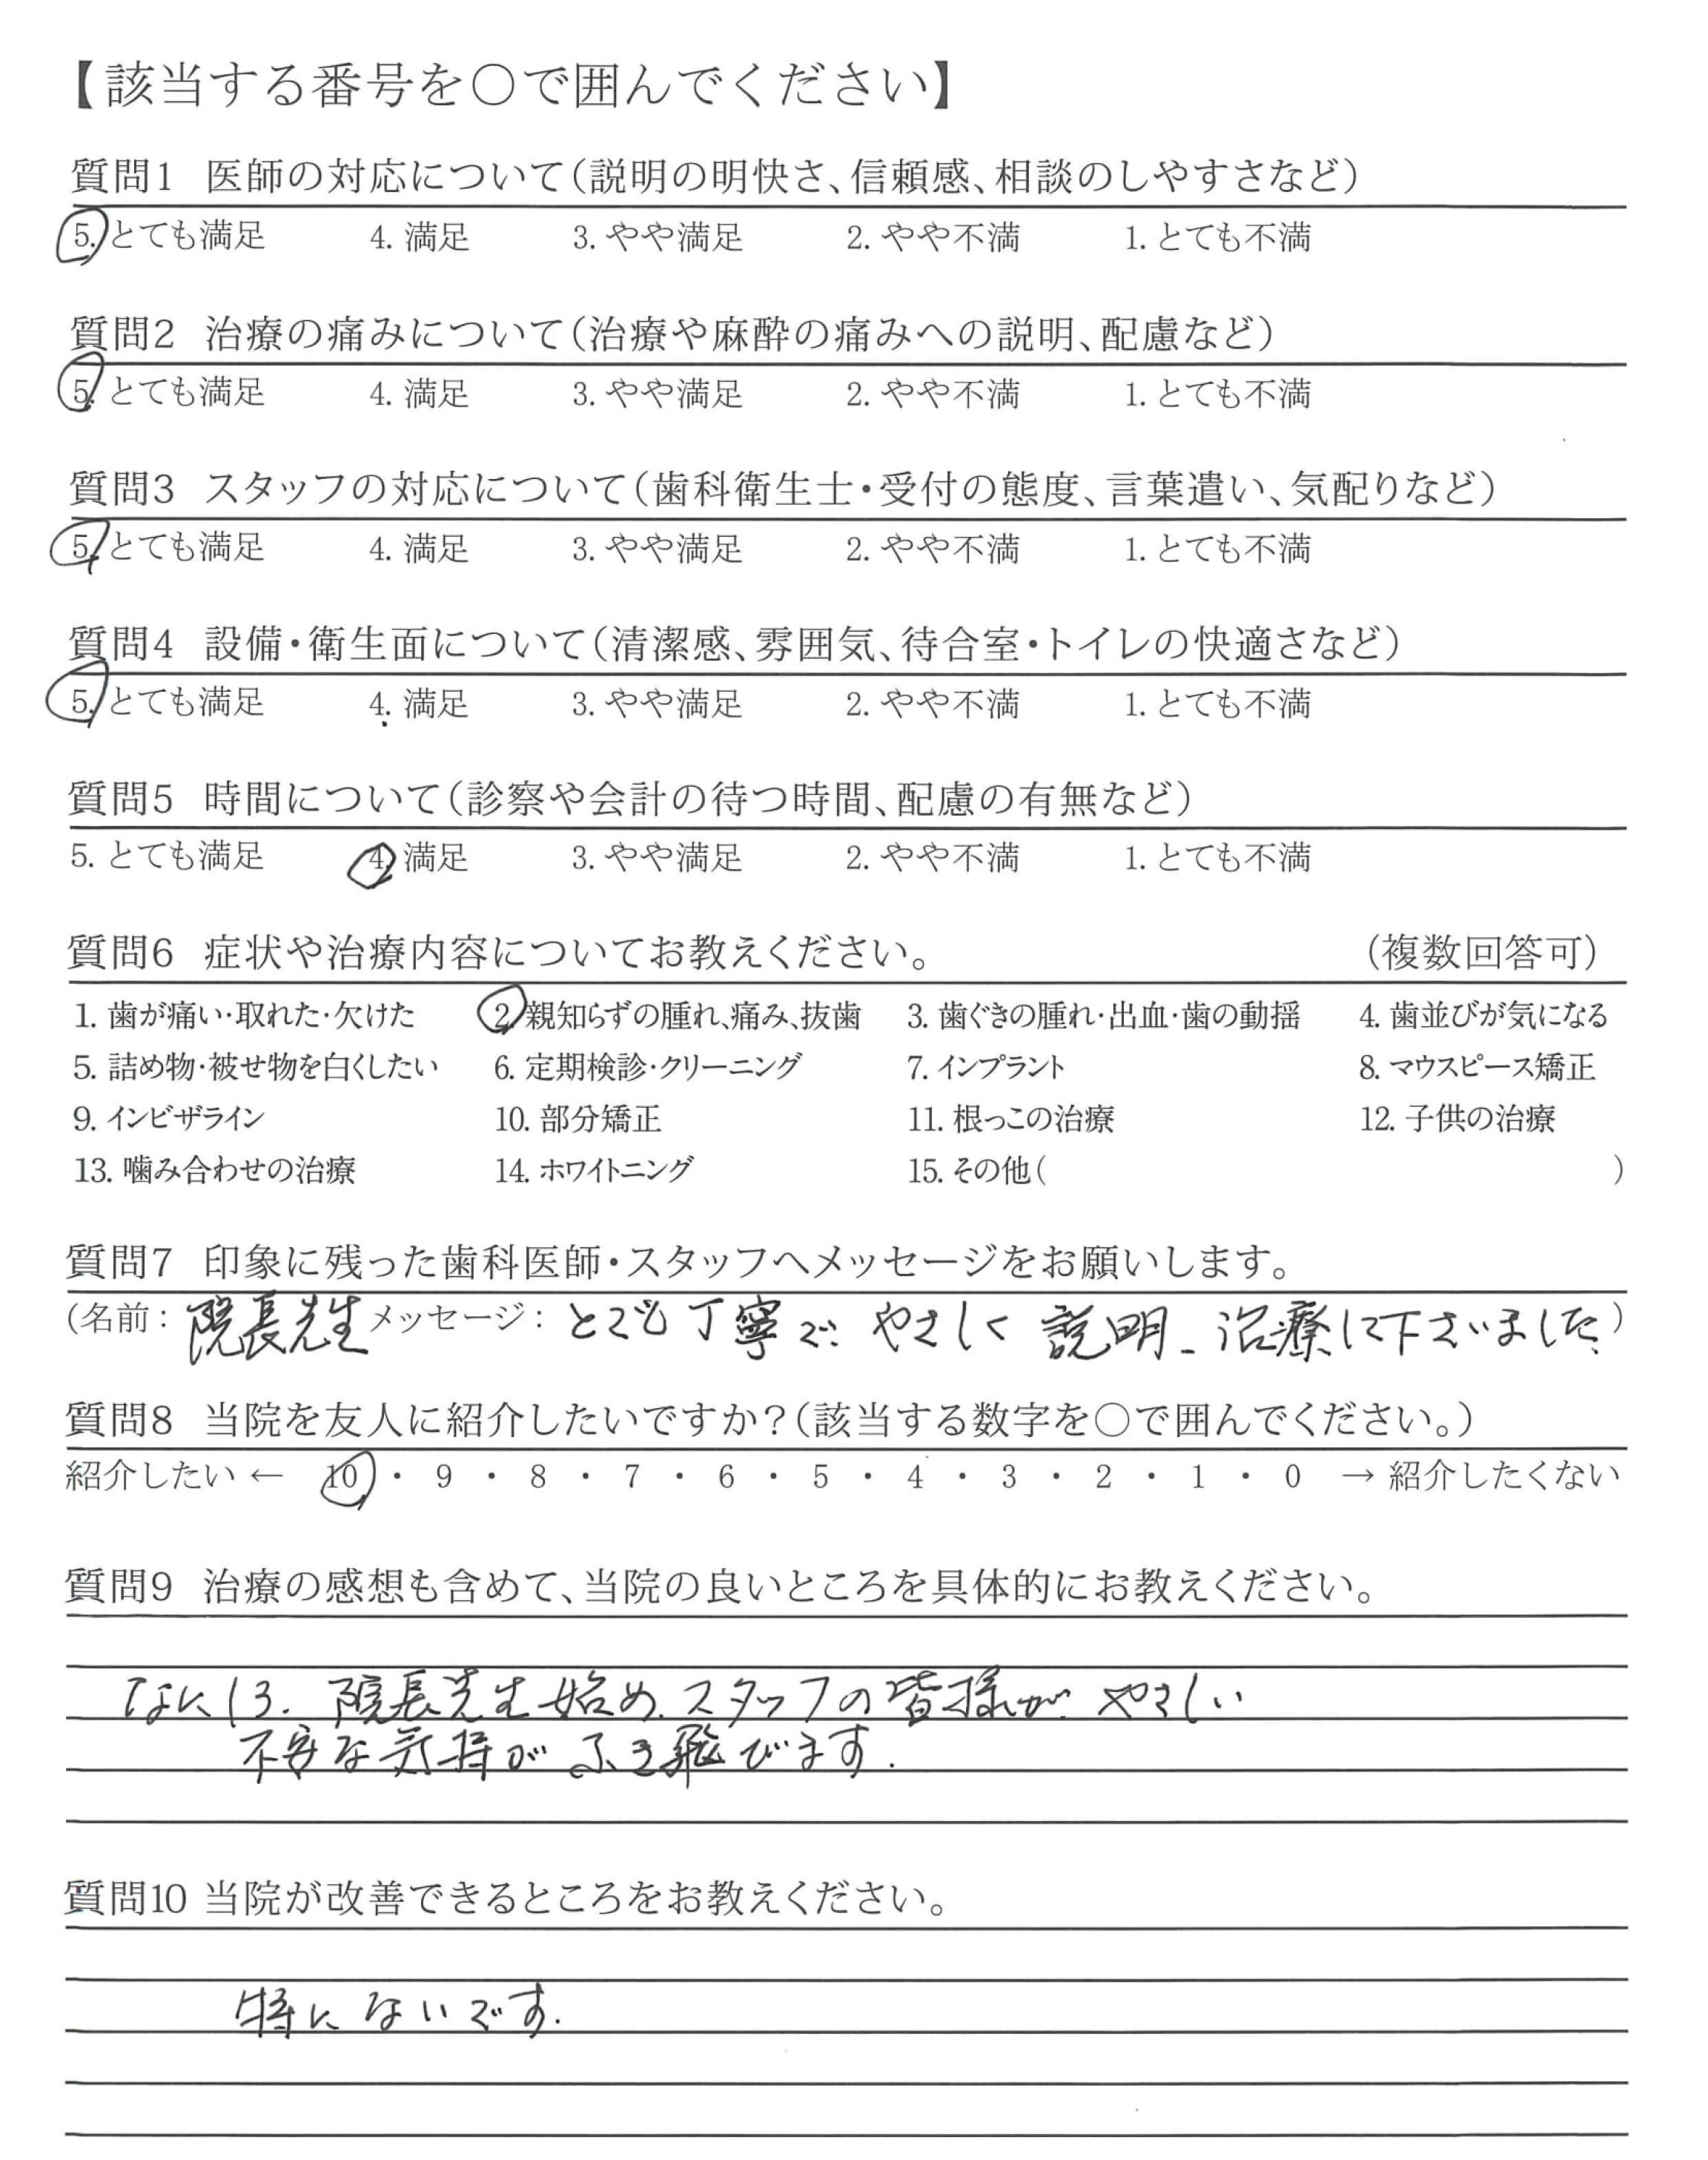 【該当する番号を〇で囲んでください】
質問1 医師の対応について(説明の明快さ、信頼感、相談のしやすさなど)
5. とても満足 4. 満足 3. やや満足 2. やや不満 1. とても不満
質問2 治療の痛みについて(治療や麻酔の痛みへの説明、配慮など)
5. とても満足 4. 満足 3. やや満足 2. やや不満 1. とても不満
質問3 スタッフの対応について(歯科衛生士・受付の態度、言葉遣い、気配りなど)
5. とても満足 4. 満足 3. やや満足 2. やや不満 1. とても不満
質問4 設備・衛生面について(清潔感、雰囲気、待合室・トイレの快適さなど)
5. とても満足 4. 満足 3. やや満足 2. やや不満 1. とても不満
質問5 時間について(診察や会計の待つ時間、配慮の有無など)
5. とても満足 4. 満足 3. やや満足 2. やや不満 1. とても不満
質問6 症状や治療内容についてお教えください。 (複数回答可)
1. 歯が痛い・取れた・欠けた 2. 親知らずの腫れ、痛み、抜歯 3. 歯ぐきの腫れ・出血・歯の動揺 4. 歯並びが気になる
5. 詰め物・被せ物を白くしたい 6. 定期検診・クリーニング 7. インプラント 8. マウスピース矯正
9. インビザライン 10. 部分矯正 11. 根っこの治療 12. 子供の治療
13. 噛み合わせの治療 14. ホワイトニング 15. その他( )
質問7 印象に残った歯科医師・スタッフへメッセージをお願いします。
(名前: 院長先生 メッセージ: とても丁寧で やさしく 説明、治療して下さいました)
質問8 当院を友人に紹介したいですか?(該当する数字を〇で囲んでください。)
紹介したい ← 10 ・ 9 ・ 8 ・ 7 ・ 6 ・ 5 ・ 4 ・ 3 ・ 2 ・ 1 ・ 0 → 紹介したくない
質問9 治療の感想も含めて、当院の良いところを具体的にお教えください。
院長先生始め、スタッフの皆様が、やさしい
不安な気持がふき飛びます.
質問10 当院が改善できるところをお教えください。
特にないです.